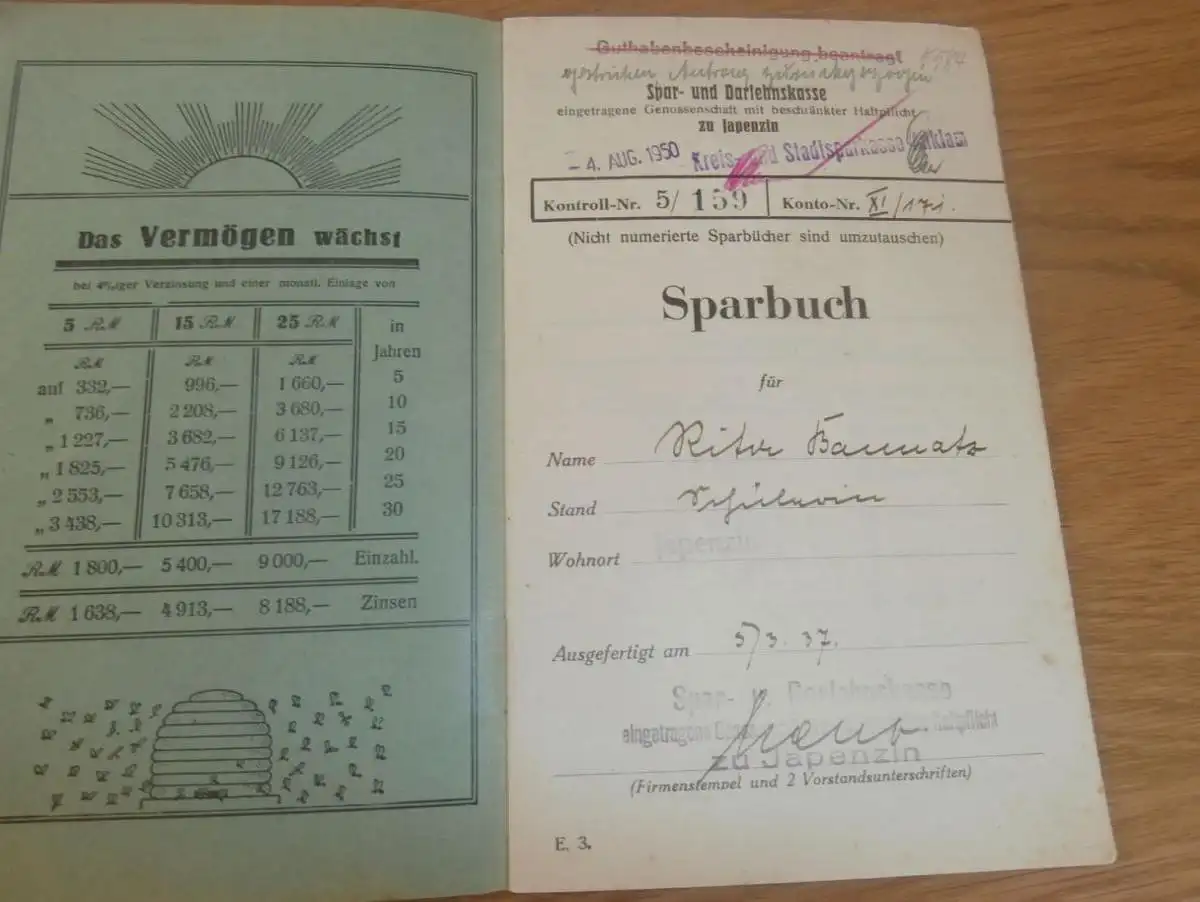 Das Vermögen wächst
bei 4%iger Verzinsung und einer monatl. Einlage von
5 RM 15 RM 25 RM in Jahren
RM RM RM
auf 332,— 996,— 1 660,— 5
„ 736,— 2 208,— 3 680,— 10
„ 1 227,— 3 682,— 6 137,— 15
„ 1 825,— 5 476,— 9 126,— 20
„ 2 553,— 7 658,— 12 763,— 25
„ 3 438,— 10 313,— 17 188,— 30
RM 1 800,— 5 400,— 9 000,— Einzahl.
RM 1 638,— 4 913,— 8 188,— Zinsen
Guthabenbescheinigung beantragt
gestrichen Antrag
Spar- und Darlehnskasse
eingetragene Genossenschaft mit beschränkter Haftpflicht
zu Japenzin
- 4. AUG. 1950 Kreis- und Stadtsparkasse Anklam
Kontroll-Nr. 5/ 159 Konto-Nr. XI/171.
(Nicht numerierte Sparbücher sind umzutauschen)
Sparbuch
für
Name Rita
Stand Schülerin
Wohnort Japenzin
Ausgefertigt am 5/3. 37.
Spar- u. Darlehnskasse
eingetragene Haftpflicht
zu Japenzin
(Firmenstempel und 2 Vorstandsunterschriften)
E. 3.